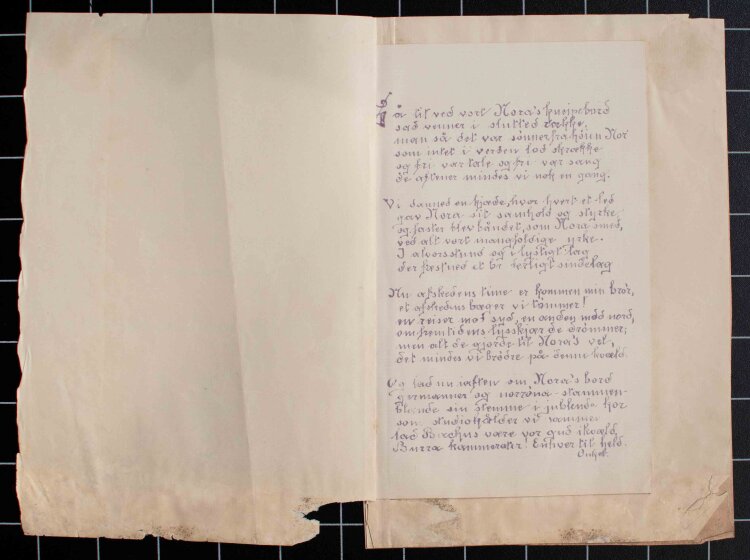 til ved vort Nora's kneipebord
sad venner i slutted række.
man så det var sønner fra høiun Nor
som intet i verden lod skrække
og fri var tale og fri var sang
de aftener mindes vi nok en gang.
Vi danned en kjæde, hvor hvert et led
gav Nora sit samhold og styrke,
og faster blev båndet, som Nora smed,
ved alt vort mangfoldige yrke.
I alvorsstund og i lystigt lag
der frestned et broderligt sindelag
Nu afskedens time er kommen min bror,
et afskedens bæger vi tømmer!
en reiser mot syd, en anden mod nord,
om fremtidens lysskjær de drømmer;
men alt de gjorde til Nora's vel,
det mindes vi brødre på denne kvæld.
Og lad nu iaften om Nora's bord
germanner og norrøna-stammen
blande sin stemme i jublende kor
som studio vi sammen
lad Bachus være vor gud ikvæld,
Hurra kammerater! Enhver til held.
Onkel.